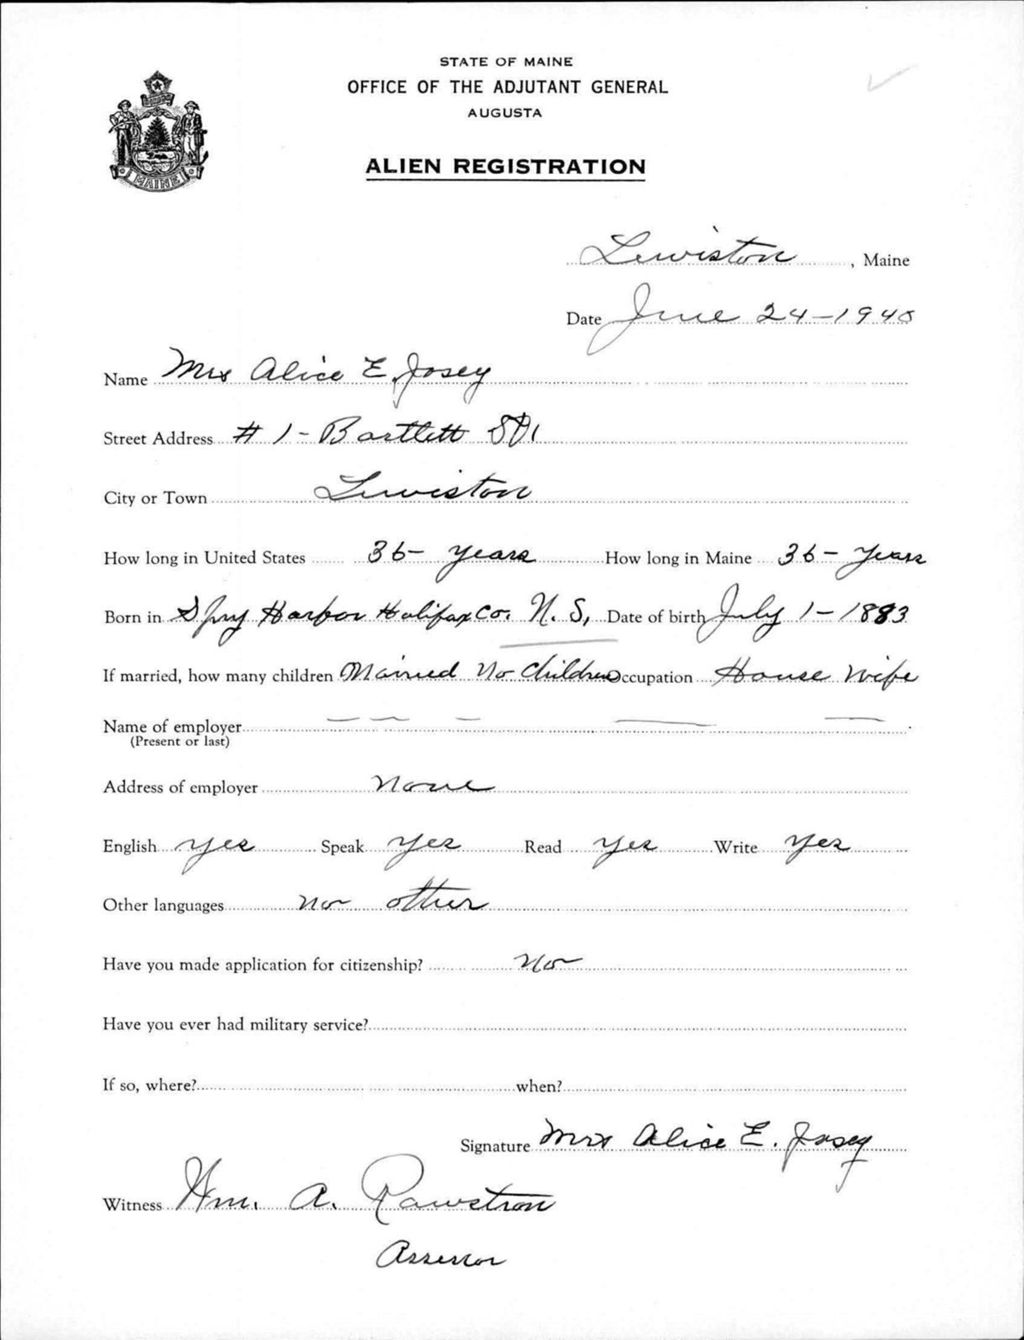 STATE OF MAINE
OFFICE OF THE ADJUTANT GENERAL
AUGUSTA
ALIEN REGISTRATION
MAINE
Lewiston, Maine
Date June 24-1940
Name Mrs Alice E. Josey
Street Address # 1 - Bartlett St.
City or Town Lewiston
How long in United States 36- years How long in Maine 36- Years
Born in Spry Harbor Halifax Co. N. S, Date of birth July 1 - 1883
If married, how many children Married No Children Occupation House Wife
Name of employer — — — — —
(Present or last)
Address of employer None
English yes Speak yes Read yes Write yes
Other languages no other
Have you made application for citizenship? No
Have you ever had military service?
If so, where? when?
Signature Mrs Alice E. Josey
Witness Wm. A. Rawstron
Assessor